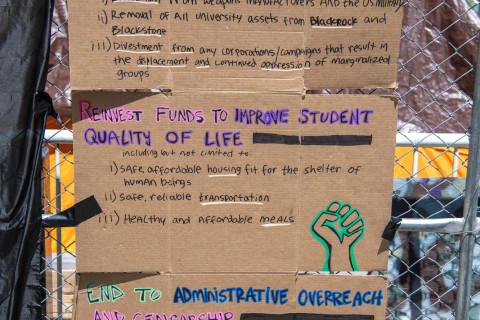 from weapons manufacturers and the US military
ii) Removal of All university assets from Blackrock and
Blackstone
iii) Divestment from any corporations/campaigns that result in
the displacement and continued oppression of marginalized
groups
REINVEST FUNDS TO IMPROVE STUDENT
QUALITY OF LIFE
including but not limited to
i) SAFE, affordable housing fit for the shelter of
Human beings
ii) Safe, reliable transportation
iii) Healthy and Affordable meals
END TO ADMINISTRATIVE OVERREACH
AND CENSORSHIP